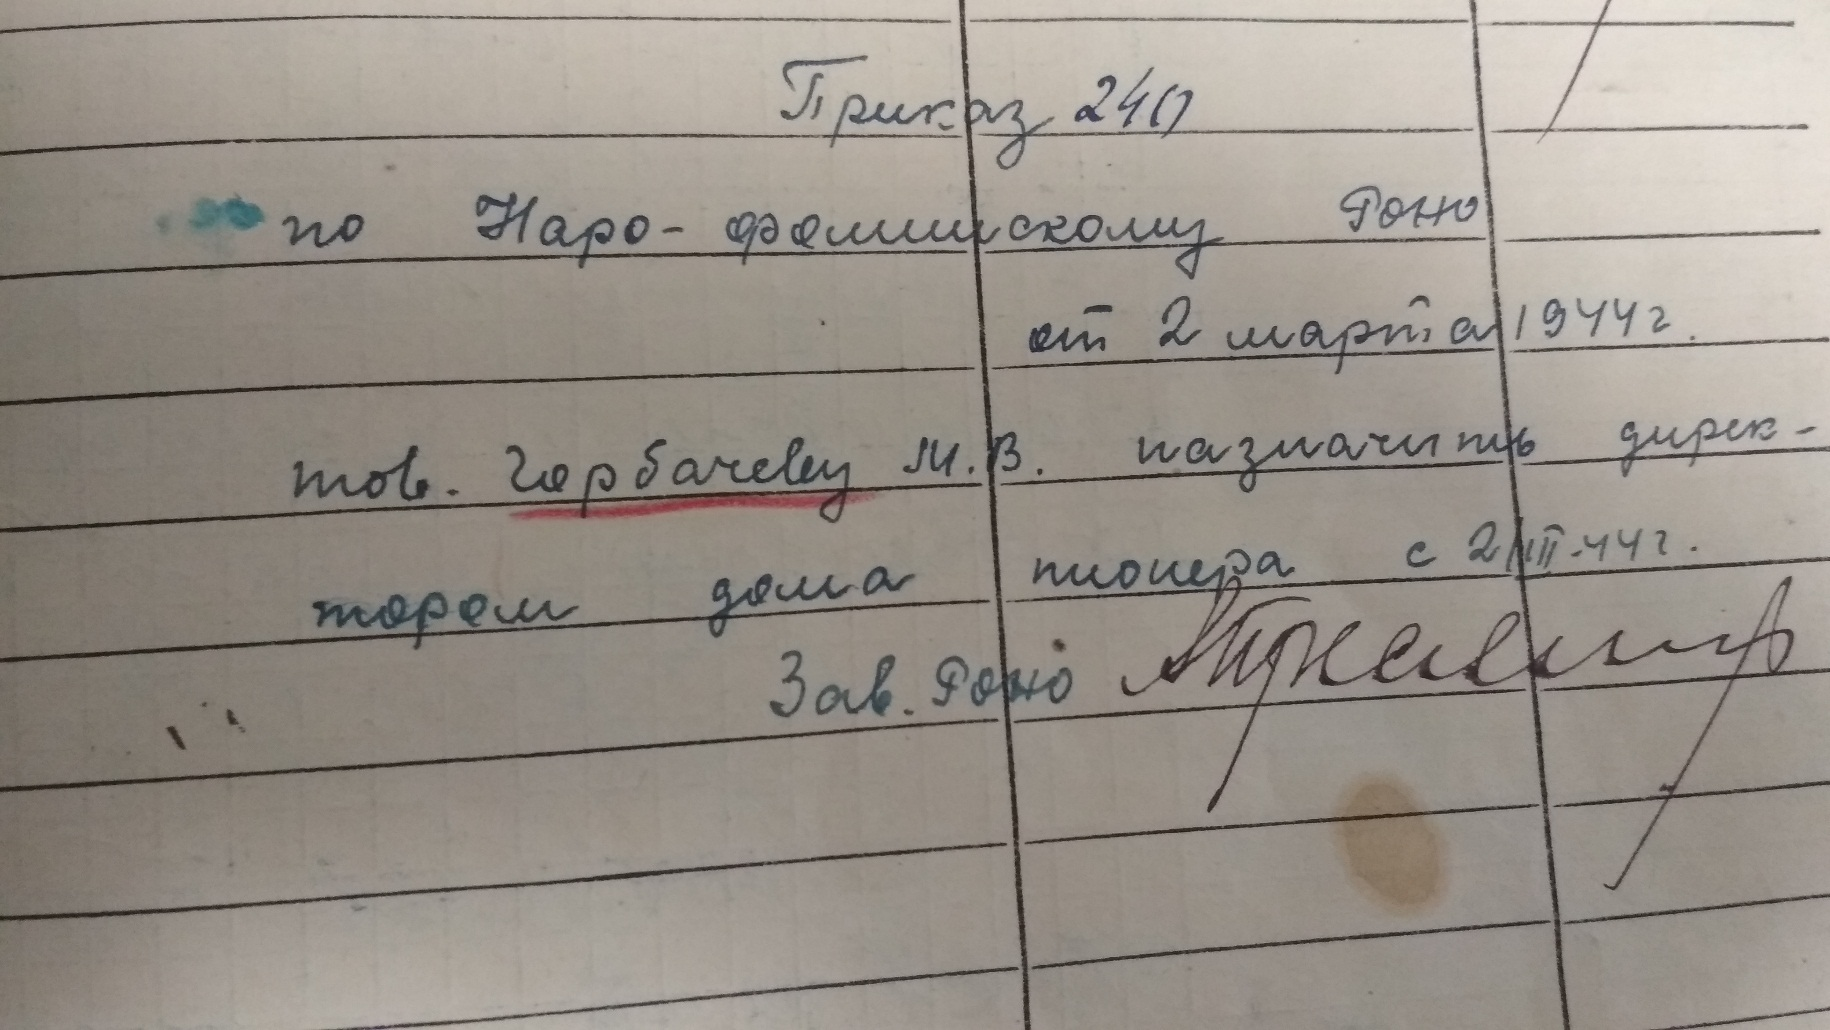 Приказ 240
по Наро-фоминскому Роно
от 2 марта 1944г.
тов. Горбачеву М.В. назначить дирек-
тором дома пионера с 2/III-44г.
Зав. Роно